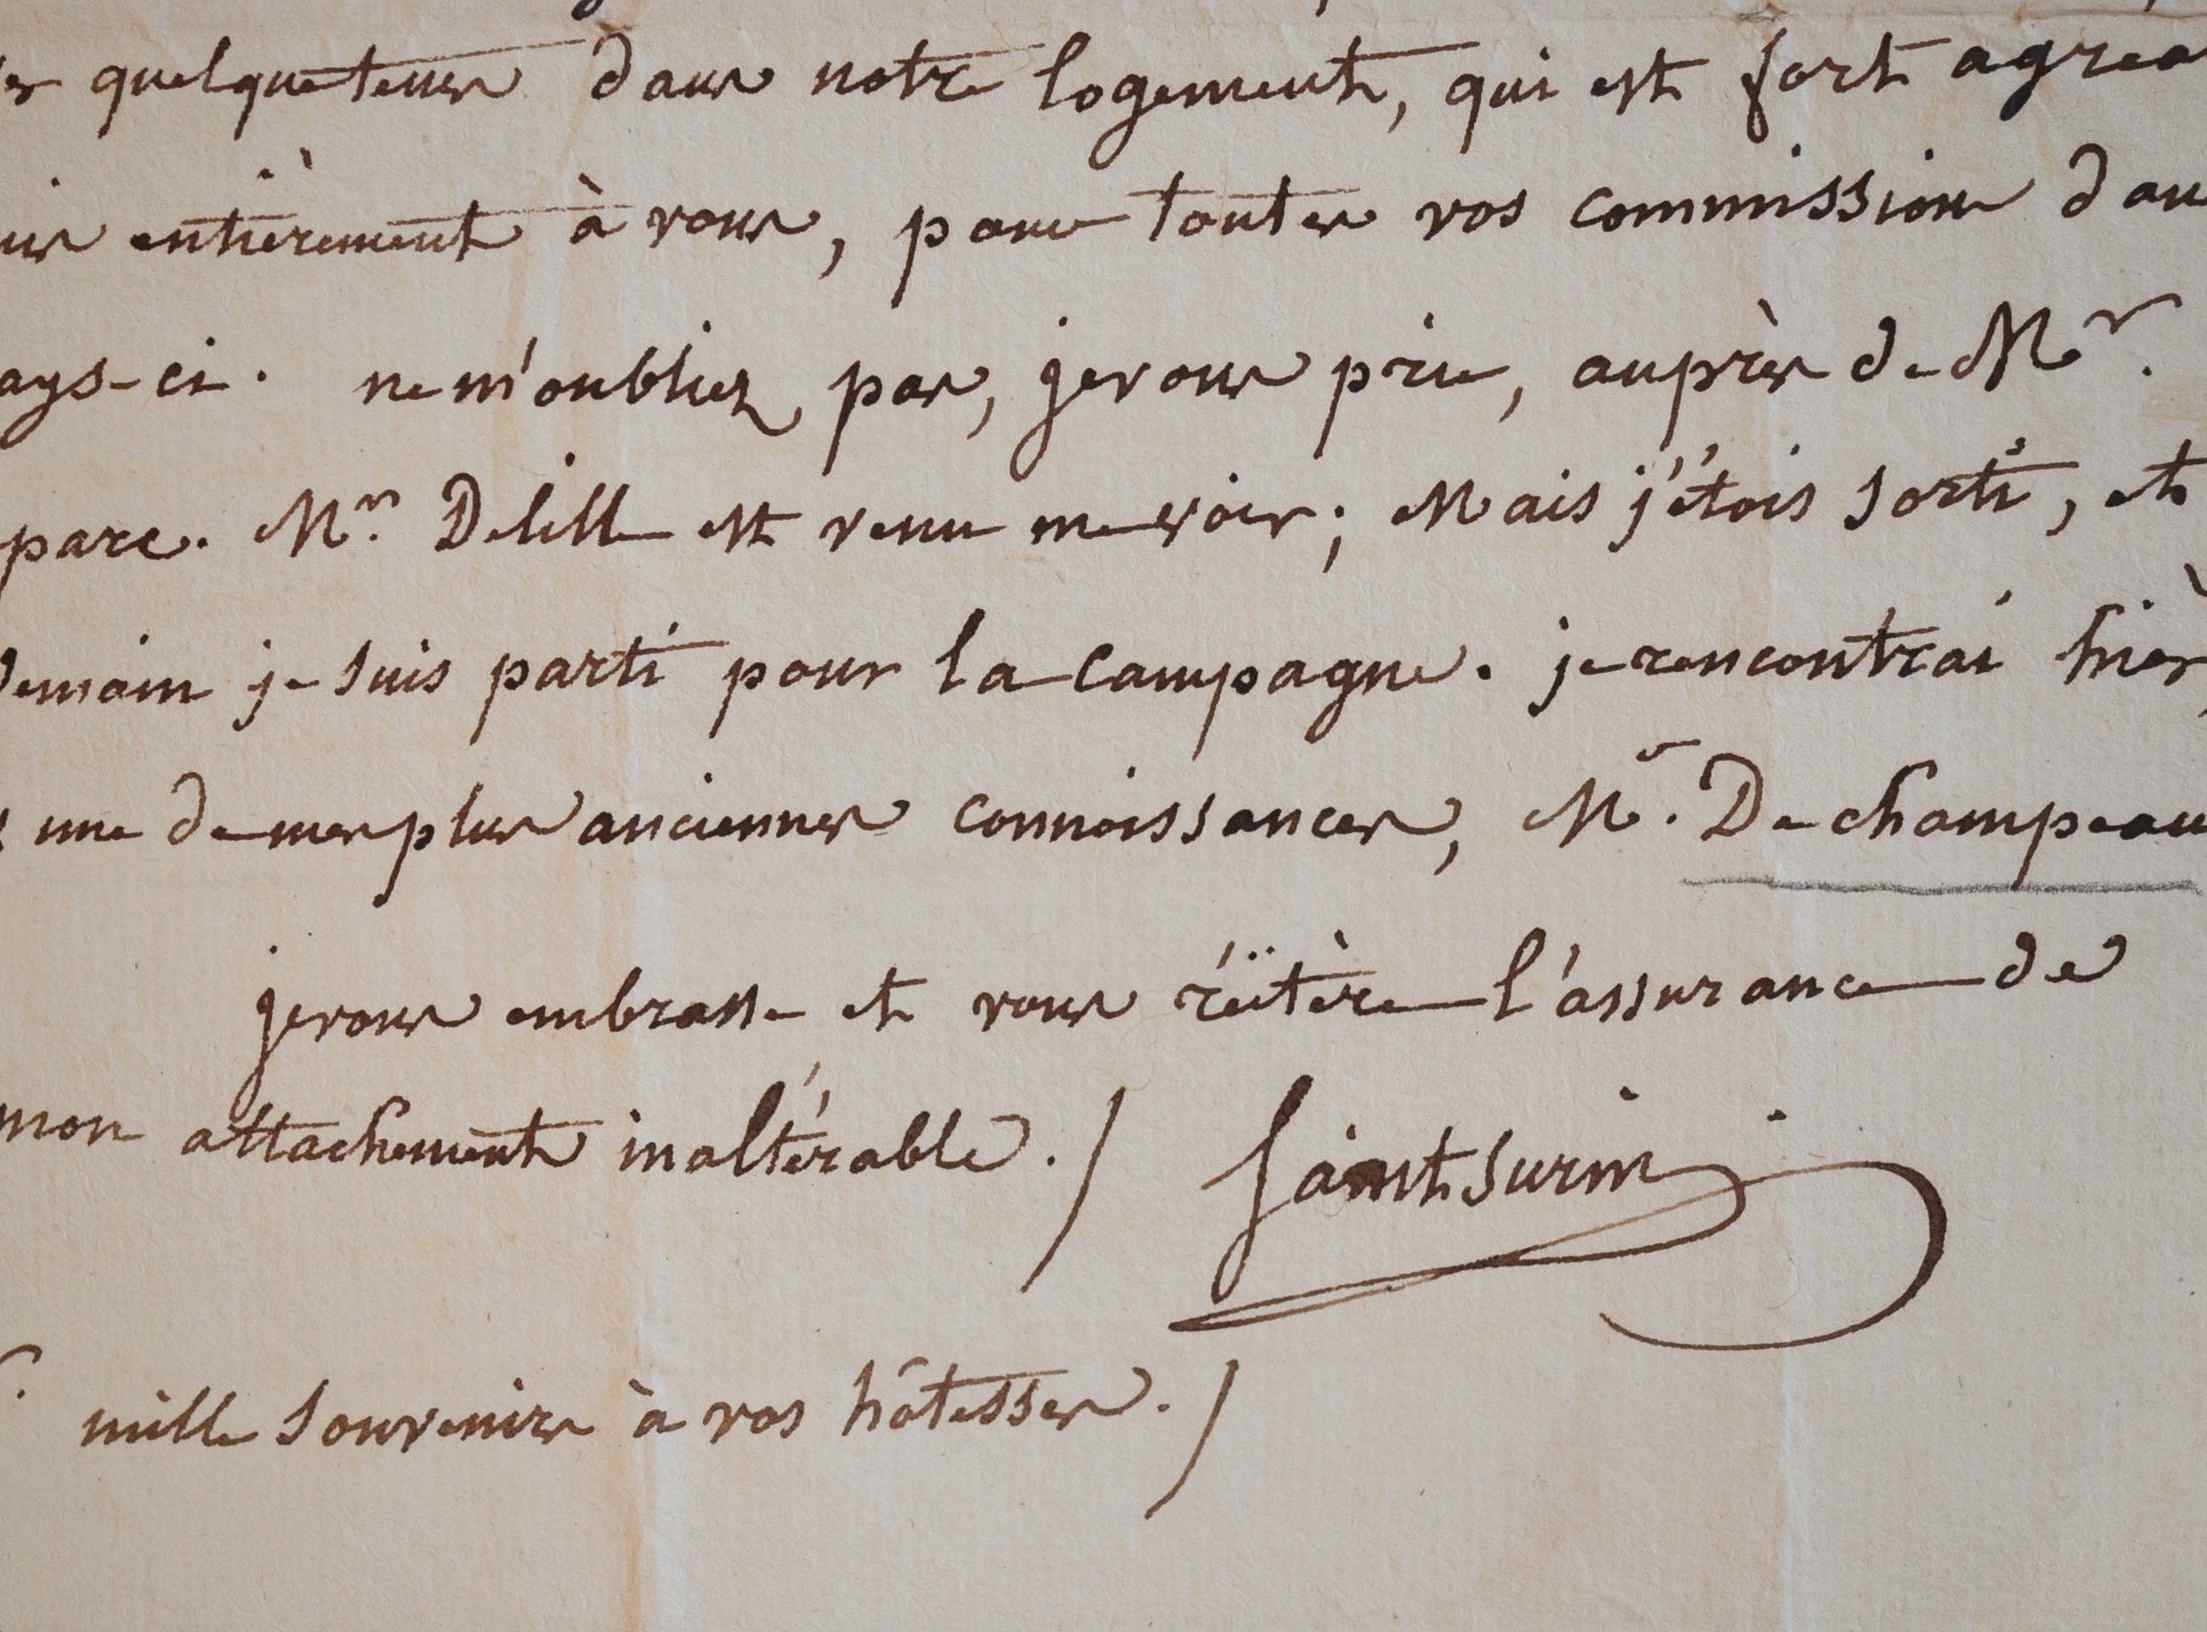 quelque tems dans notre logement, qui est fort agréa
entièrement à vous, pour toutes vos commissions dan
ays-ci. ne m'oubliez pas, je vous prie, auprès de Mr.
parc. Mr. Delille est venu me voir; Mais j'étois sorti, et
demain je suis parti pour la campagne. je rencontrai hier,
une de mes plus anciennes connoissances, Mr. De champeau
je vous embrasse et vous réitère l'assurance de
mon attachement inaltérable./ Saintsurin
mille souvenirs à vos hôtesses./